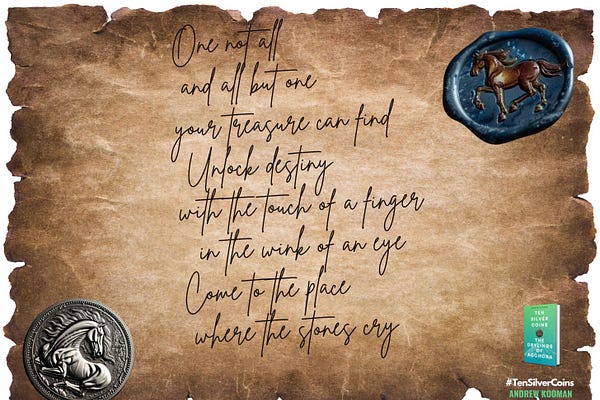 One not all
and all but one
your treasure can find
Unlock destiny
with the touch of a finger
in the wink of an eye
Come to the place
where the stones cry
TEN
SILVER
COINS
THE
DRYLINGS
OF
ACCHORA
#TenSilverCoins
ANDREW KOOMAN